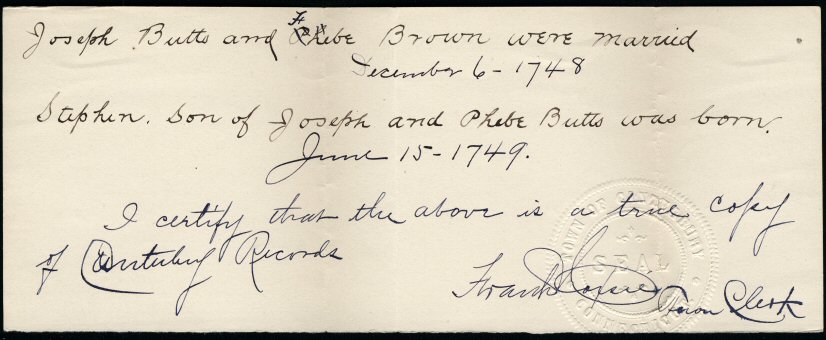 Joseph Butts and Phebe Brown were married
December 6 - 1748
Stephen. son of Joseph and Phebe Butts was born.
June 15 - 1749.
I certify that the above is a true copy
of Canterbury Records
Frank Town Clerk
TOWN OF CANTERBURY
SEAL
CONNECTICUT